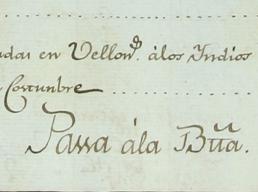 adas en Vellon. á los Yndios
Costunbre
Passa á la Bu͞a.